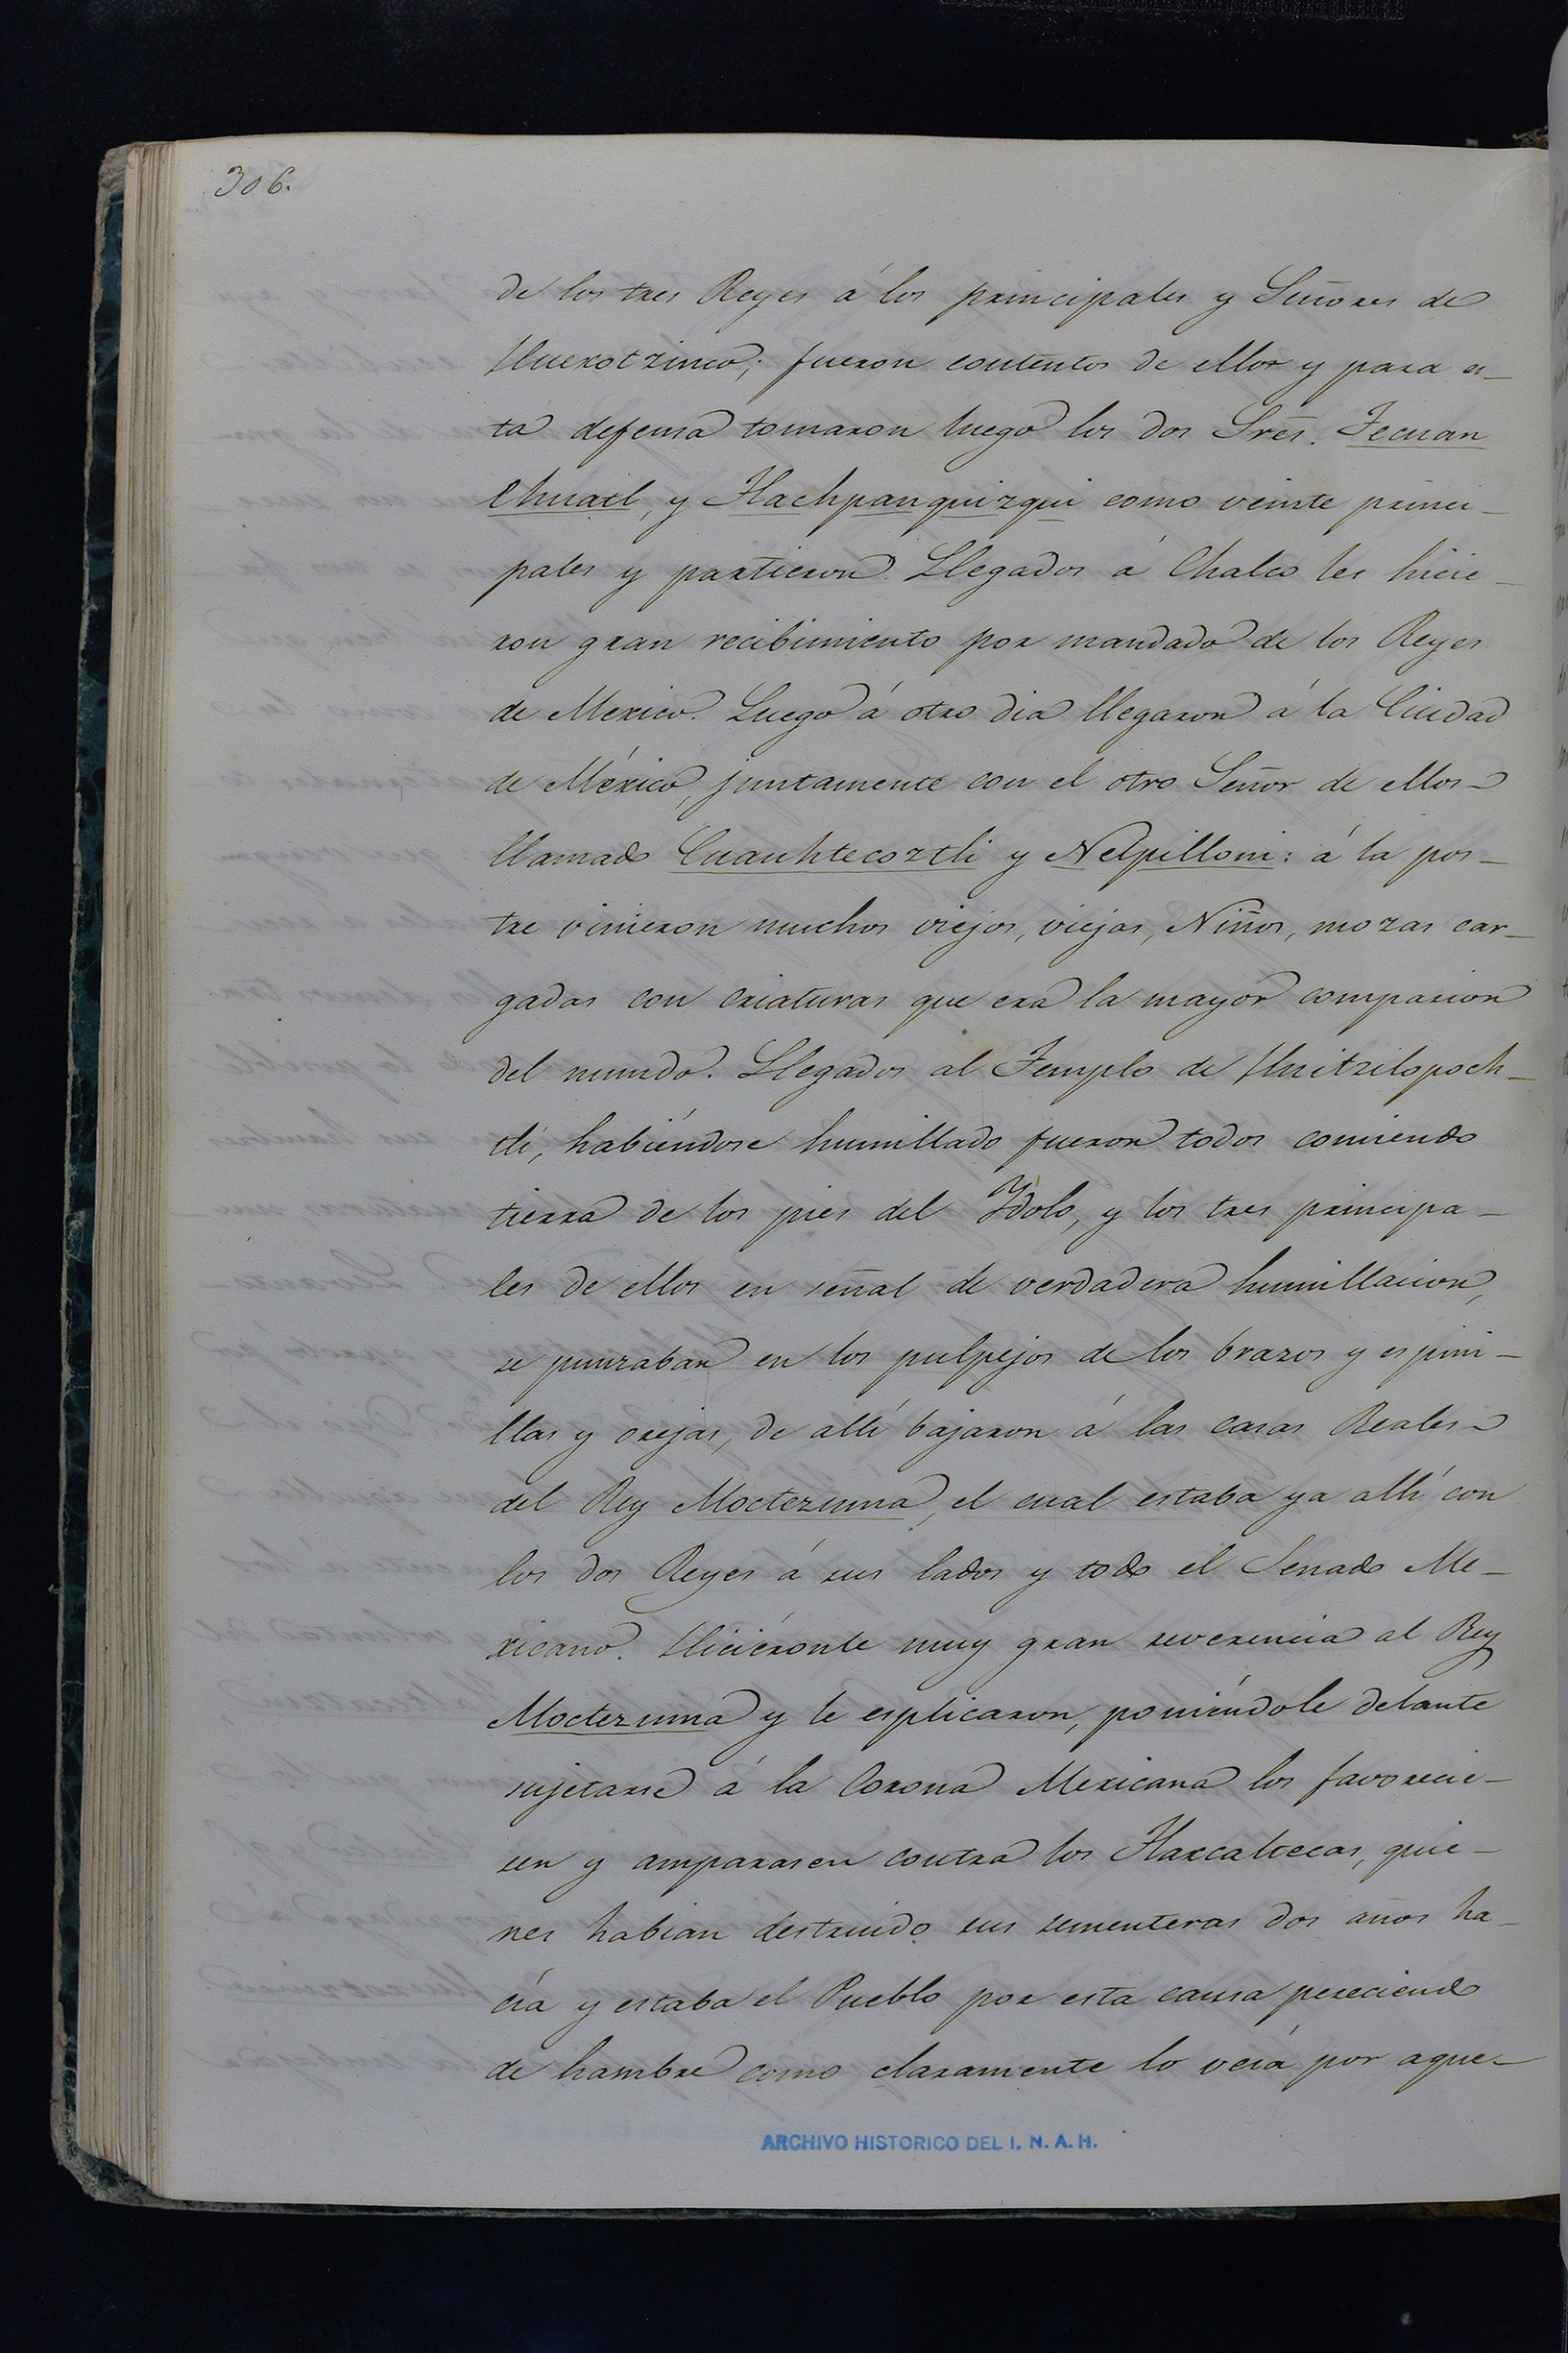 306.
de los tres Reyes á los principales y Señores de
Huexotzinco; fueron contentos de ellos y para es-
ta defensa tomaron luego los dos Sres. Tecuan
Ehuatl, y Tlachpanquizqui como veinte princi-
pales y partieron. Llegados á Chalco les hicie-
ron gran recibimiento por mandado de los Reyes
de Mexico. Luego á otro dia llegaron á la Ciudad
de México, juntamente con el otro Señor de ellos
llamado Cuauhtecoztli y Nelpilloni: á la pos-
tre vinieron muchos viejos, viejas, Niños, mozas car-
gadas con criaturas que era la mayor compasion
del mundo. Llegados al Templo de Huitzilopoch-
tli, habiéndose humillado fueron todos comiendo
tierra de los pies del Ydolo, y los tres principa-
les de ellos en señal de verdadera humillacion,
se punzaban en los pulpejos de los brazos y espini-
llas y orejas, de allí bajaron á las casas Reales
del Rey Moctezuma, el cual estaba ya allí con
los dos Reyes á sus lados y todo el Senado Me-
xicano. Hiciéronle muy gran reverencia al Rey
Moctezuma y le esplicaron, poniéndole delante
sujetarse á la Corona Mexicana los favorecie-
sen y amparasen contra los Tlaxcaltecas, quie-
nes habian destruido sus sementeras dos años ha-
cía y estaba el Pueblo por esta causa pereciendo
de hambre como claramente lo veía por aque-
ARCHIVO HISTORICO DEL I. N. A. H.